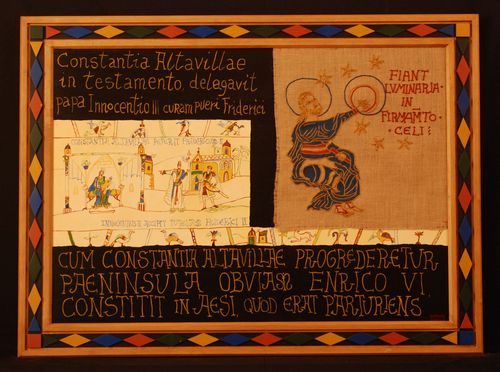 Constantia Altavillae
in testamento delegavit
papa Innocentio III curam pueri Friderici
FIANT
LUMINARIA
IN
FIRMAMTO
CELI
CUM CONSTANTIA ALTAVILLAE PROGREDERETUR
PAENINSULA OBVIAM ENRICO VI
CONSTITIT IN AESI, QUOD ERAT PARTURIENS